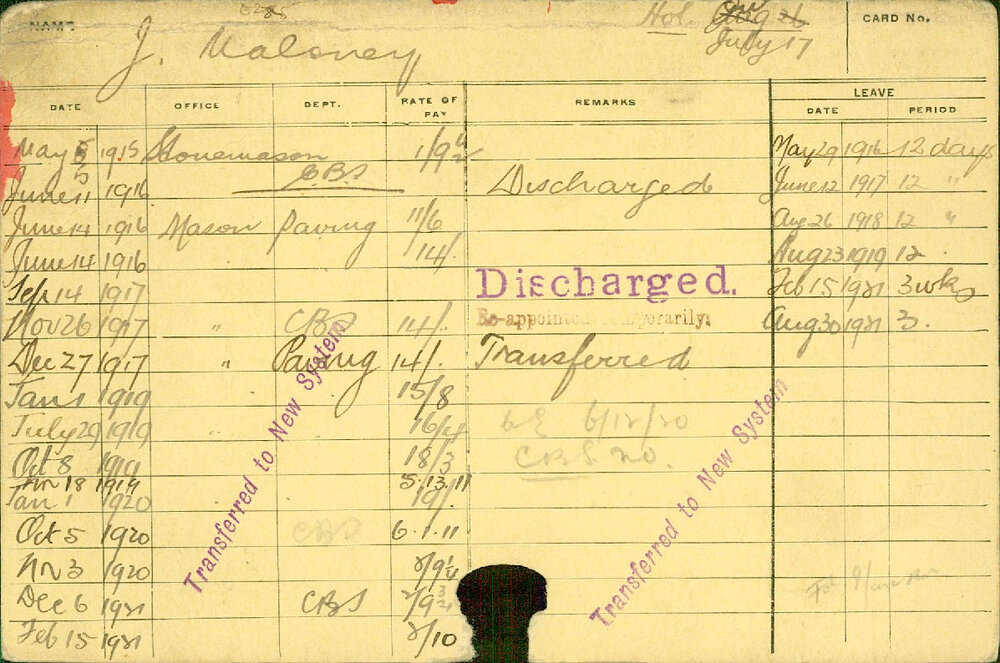 NAME
J. Maloney
Hol.
July 17
CARD No.
DATE OFFICE DEPT. RATE OF PAY REMARKS LEAVE
DATE PERIOD
May 5 1915 Stonemason 1/9 May 29 1916 12 days
June 11 1916 CBS Discharged June 12 1917 12 "
June 14 1916 Mason Paving 11/6 Aug 26 1918 12 "
June 14 1916 14/. Aug 23 1919 12.
Sep 14 1917 Discharged. Feb 15 1921 3 wks
Nov 26 1917 " CBS 14/. Re-appointed temporarily. Aug 30 1921 3.
Dec 27 1917 " Paving 14/. Transferred
Jan 1 1919 15/8
July 29 1919 16/4 6/12/20
Oct 8 1919 18/3 CBS no.
Nov 18 1919 5.13.11
Jan 1 1920 19/.
Oct 5 1920 CBS 6.1.11
Nov 3 1920 2/9¼
Dec 6 1921 CBS 2/9¾
Feb 15 1921 2/10
Transferred to New System
Transferred to New System